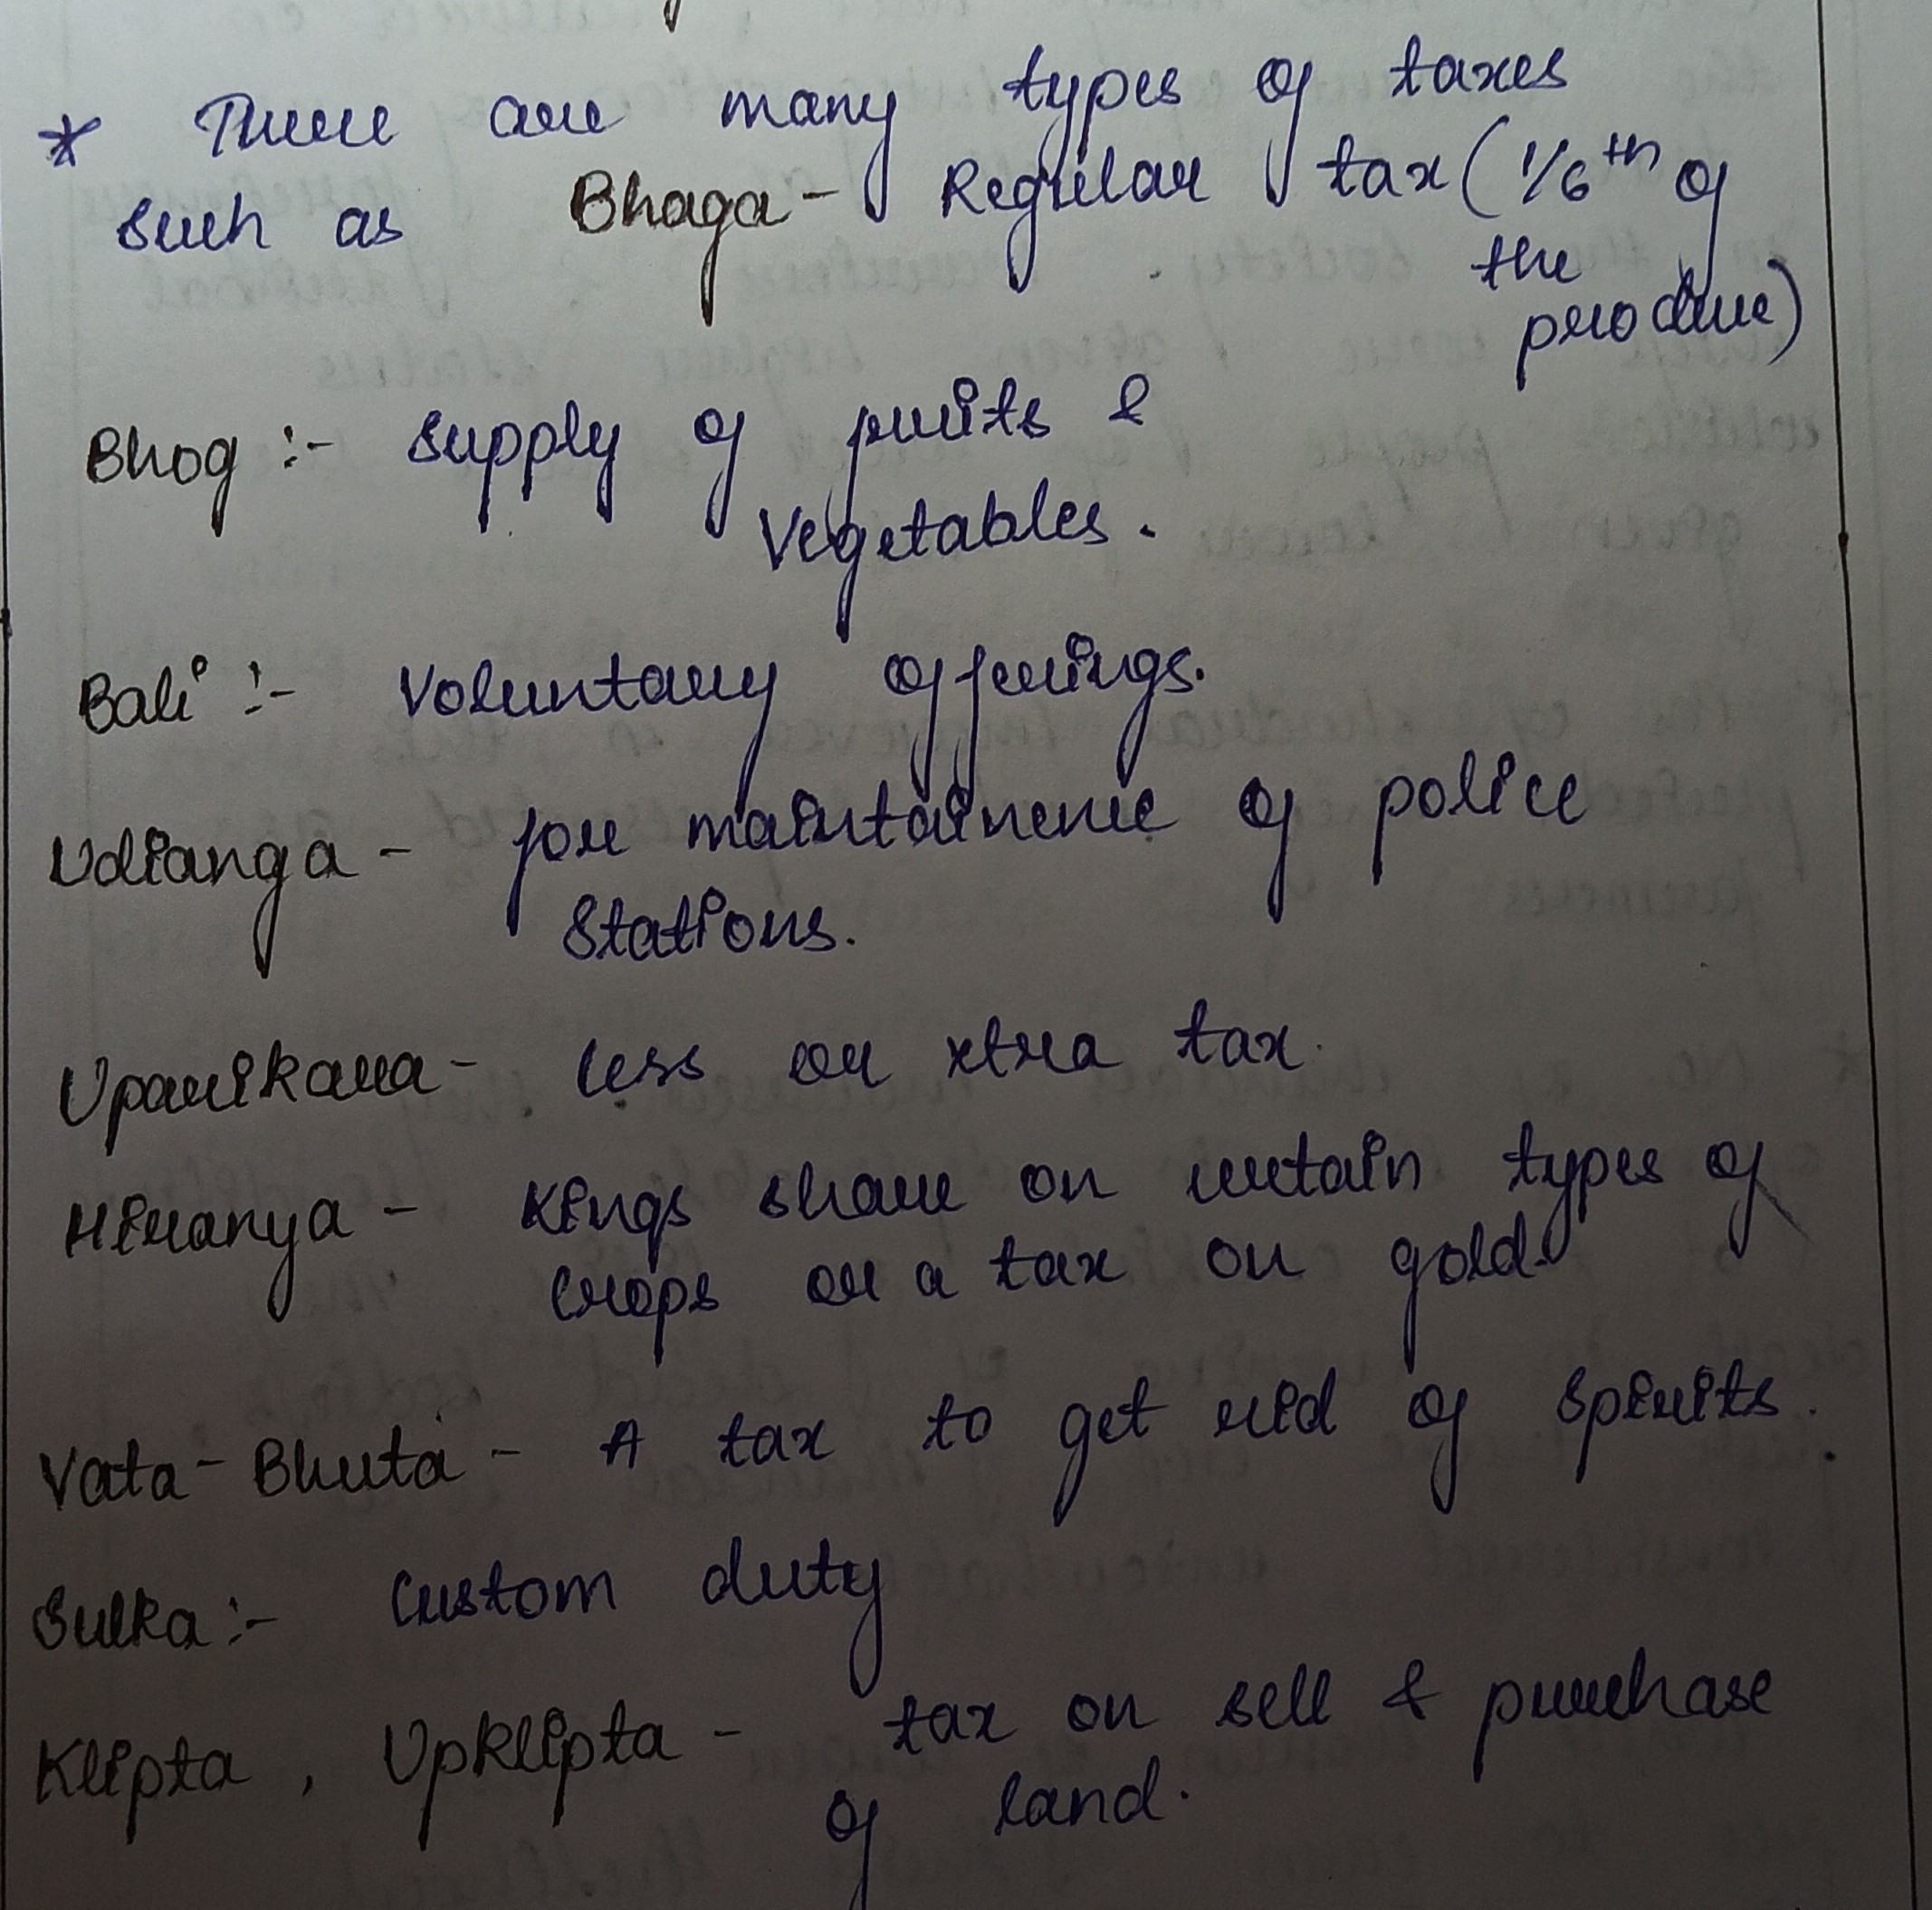 * There are many types of taxes
such as Bhaga - Regular tax (1/6th of
the
produce)
Bhog :- supply of fruits &
Vegetables.
Bali :- Voluntary offerings.
Udianga - for maintainence of police
Stations.
Uparikara - Cess or xtra tax.
Hiranya - Kings share on certain types of
crops or a tax on gold.
Vata - Bhuta - A tax to get rid of spirits.
Sulka :- Custom duty
Klipta , Upklipta - tax on sell & purchase
of land.